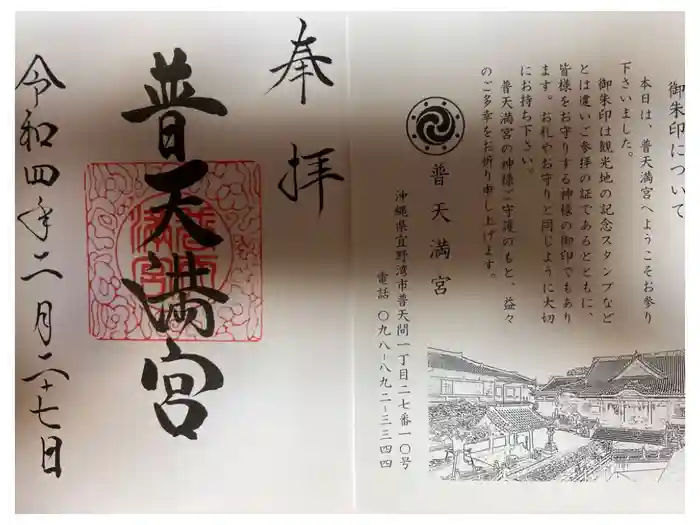 御朱印について
本日は、普天満宮へようこそお参り
下さいました。
御朱印は観光地の記念スタンプなど
とは違いご参拝の証であるとともに、
皆様をお守りする神様の御印でもあり
ます。お札やお守りと同じように大切
にお持ち下さい。
普天満宮の神様ご守護のもと、益々
のご多幸をお祈り申し上げます。
普天満宮
沖縄県宜野湾市普天間一丁目二七番一〇号
電話 〇九八-八九二-三三四四
奉拝
普天満宮
令和四年二月二十七日